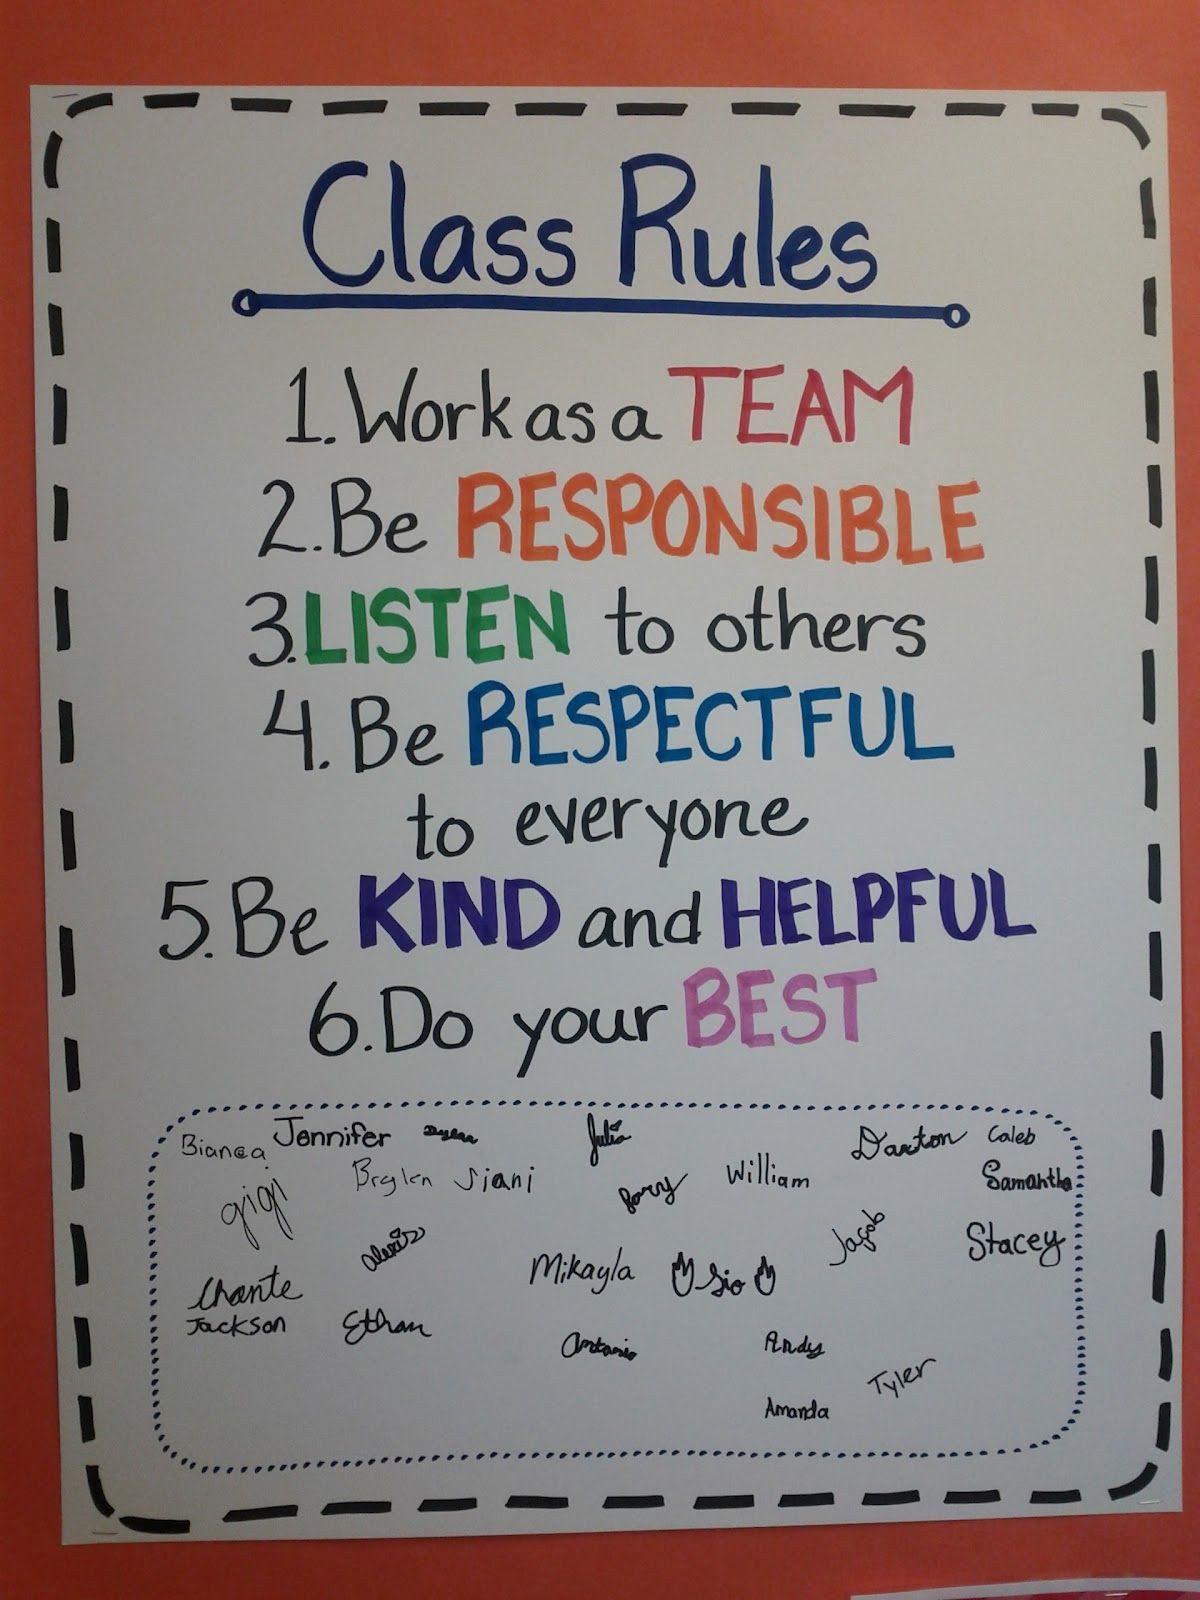 Class Rules
1. Work as a TEAM
2. Be RESPONSIBLE
3. LISTEN to others
4. Be RESPECTFUL
to everyone
5. Be KIND and HELPFUL
6. Do your BEST
Bianca Jennifer Julia Darton Caleb
gigi Siani William Samantha
Alexis Mikayla Sio Jacob Stacey
Chante
Jackson Ethan Antonio Andy
Tyler
Amanda